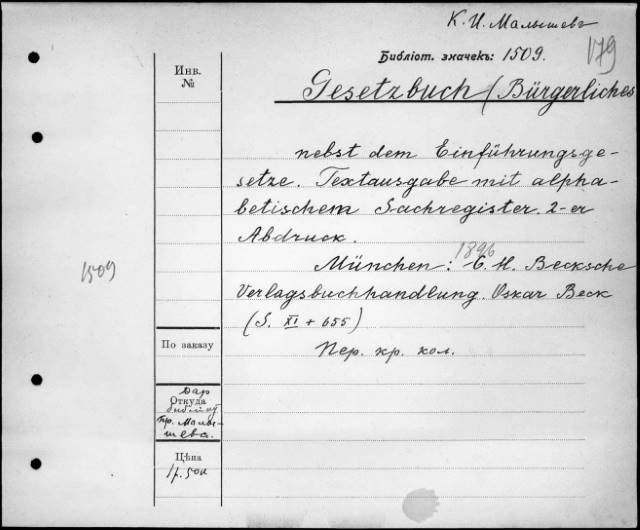 К. И. Малышевъ
Библіот. значекъ: 1509.
179
Инв.
№
Gesetzbuch (Bürgerliches
nebst dem Einführungsge-
setze. Textausgabe mit alpha-
betischem Sachregister. 2-er
Abdruck.
1896
München: C. H. Becksche
1509
Verlagsbuchhandlung. Oskar Beck
(S. XI + 655)
По заказу
Пер. кр. кол.
Дар
Откуда
библіот
пр. Малы-
шева.
Цѣна
1 р. 50 к